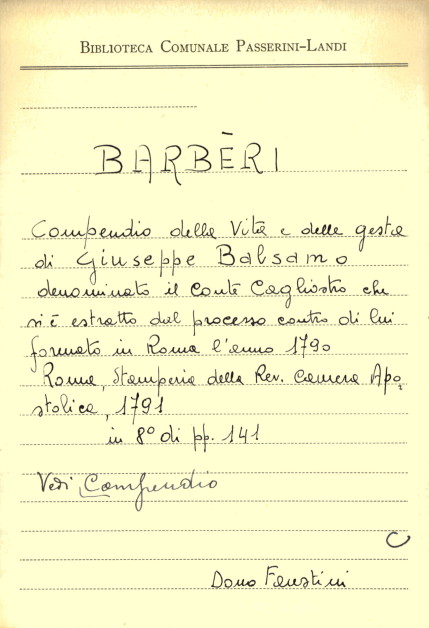 BIBLIOTECA COMUNALE PASSERINI-LANDI
BARBÈRI
Compendio della Vita e delle gesta
di Giuseppe Balsamo
denominato il Conte Cagliostro che
si è estratto dal processo contro di lui
formato in Roma l'anno 1790
Roma, Stamperia della Rev. Camera Apo
stolica, 1791
in 8° di pp. 141
Vedi Compendio
C
Dono Faustini